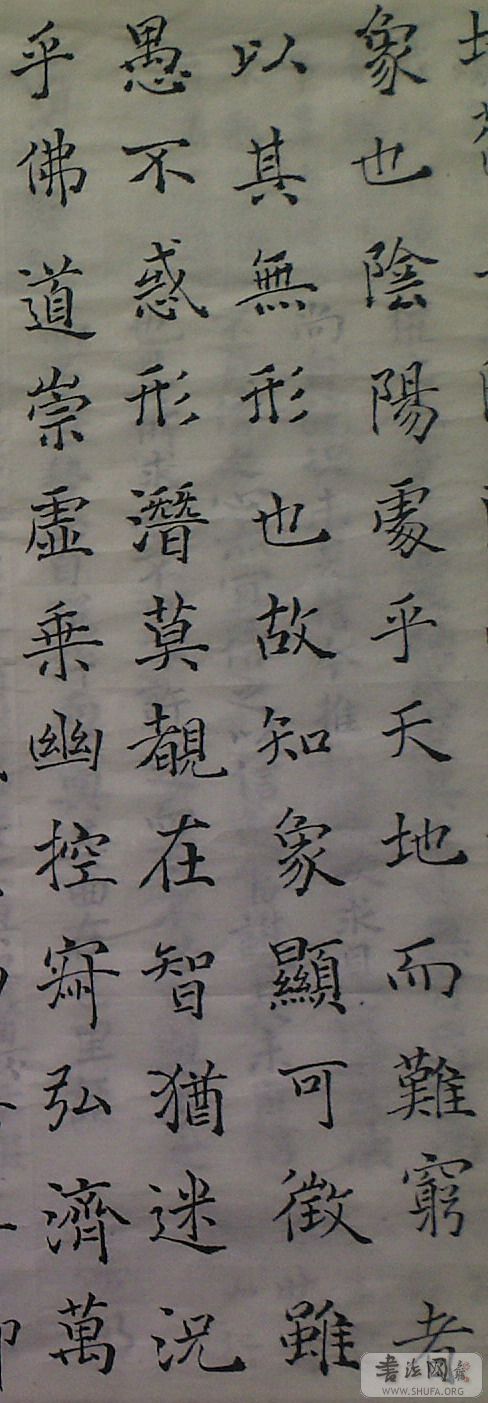 象也陰陽處乎天地而難窮者
以其無形也故知象顯可徵雖
愚不惑形潛莫覩在智猶迷況
乎佛道崇虛乗幽控寂弘濟萬
書法网
WWW.SHUFA.ORG